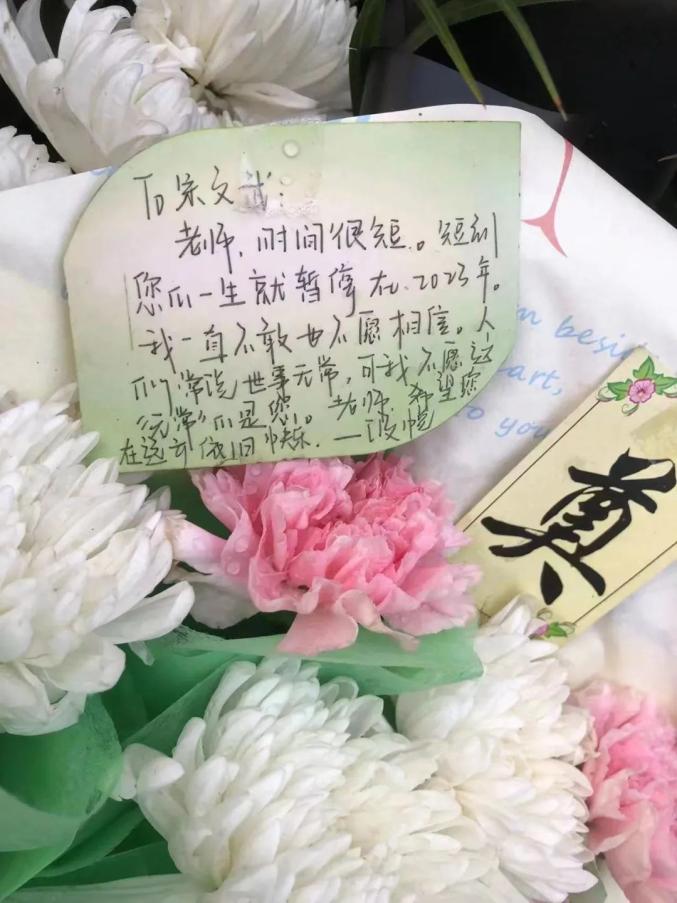 To 宋文武:
老师,时间很短。短到
您的一生就暂停在2023年。
我一直不敢也不愿相信。人
们常说世事无常,可我不愿这
“无常”的是您。老师,希望您
在远方依旧快乐.——
m besi
art,
o you
奠